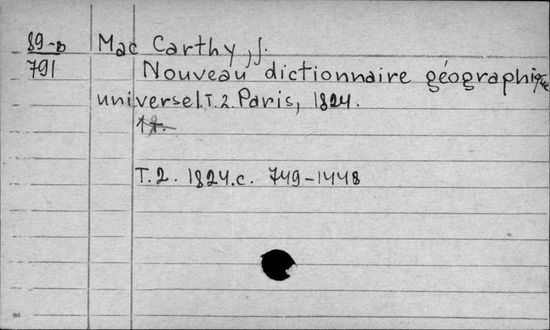 89-в Mac Carthy, J.
791 Nouveau dictionnaire géographique
universel. T. 2. Paris, 1824.
T. 2. 1824. c. 749-1448